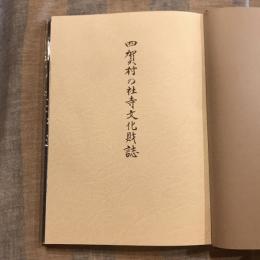 四賀村の社寺文化財誌